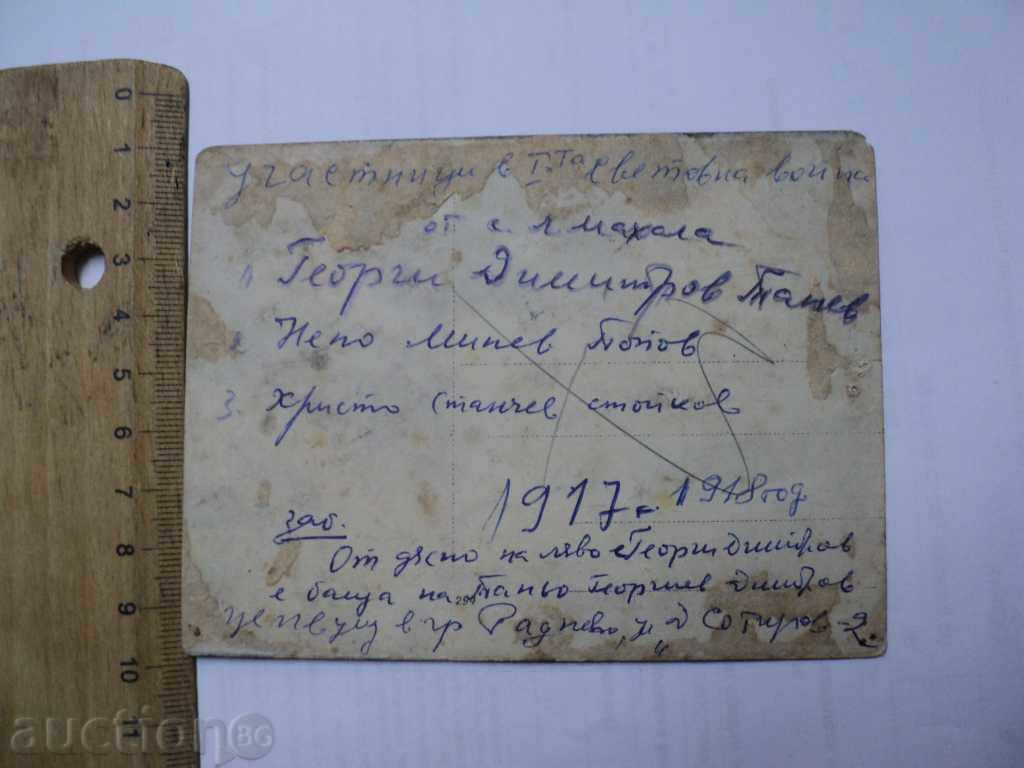 участници в I-та световна война
от с. Л. махала
1) Георги Димитров Танев
2. Нено Минев Попов
3. Христо Станчев Стойков
1917 - 1918 год
заб.
От дясно на ляво Георги Димитров
е баща на Таньо Георгиев Димитров
в гр Раднево, ул Д Сотиров - 2.
0
1
2
3
4
5
6
7
8
9
10
11
auction BG